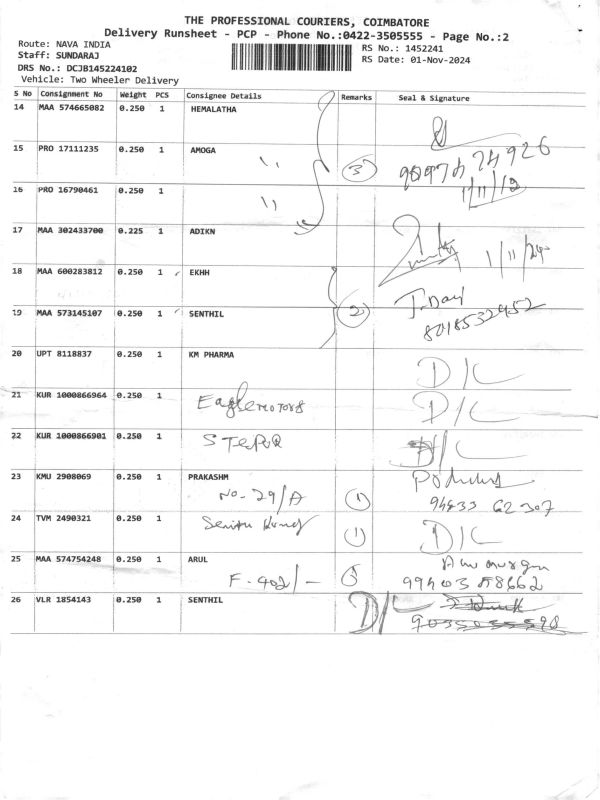 THE PROFESSIONAL COURIERS, COIMBATORE
Delivery Runsheet - PCP - Phone No.:0422-3505555 - Page No.:2
Route: NAVA INDIA
RS No.: 1452241
Staff: SUNDARAJ
RS Date: 01-Nov-2024
DRS No.: DCJB145224102
Vehicle: Two Wheeler Delivery
S No Consignment No Weight PCS Consignee Details Remarks Seal & Signature
14 MAA 574665082 0.250 1 HEMALATHA
15 PRO 17111235 0.250 1 AMOGA
3
16 PRO 16790461 0.250 1
17 MAA 302433700 0.225 1 ADIKN
1/11/24
18 MAA 600283812 0.250 1 EKHH
19 MAA 573145107 0.250 1 SENTHIL
2
20 UPT 8118837 0.250 1 KM PHARMA
D/C
21 KUR 1000866964 0.250 1
Eaglemotors
D/C
22 KUR 1000866901 0.250 1
D/C
23 KMU 2908069 0.250 1 PRAKASHM
No-29/A
1
94833 62307
24 TVM 2490321 0.250 1
1
D/C
25 MAA 574754248 0.250 1 ARUL
F-402/-
26 VLR 1854143 0.250 1 SENTHIL
D/C